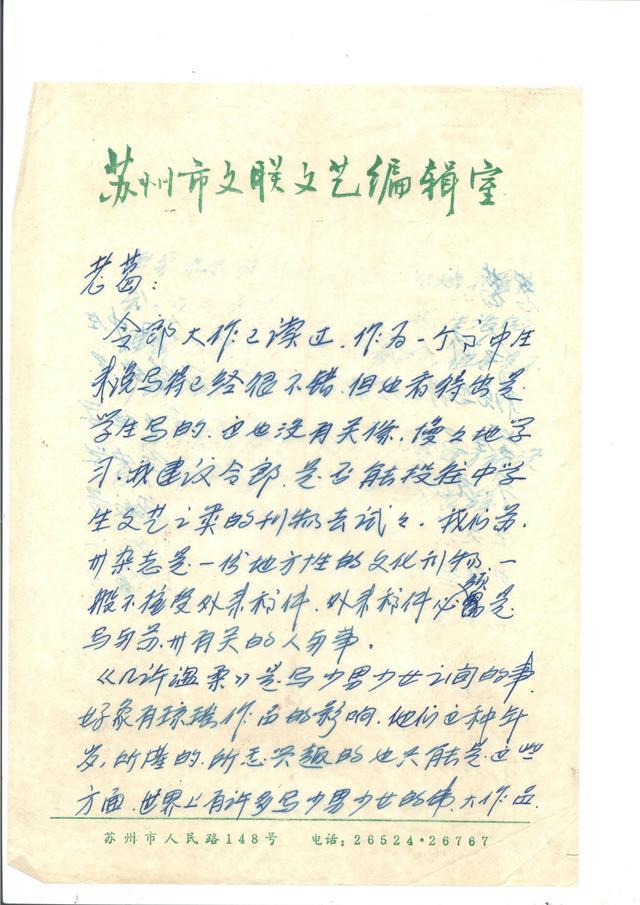 苏州市文联文艺编辑室
老葛：
令郎大作已读过，作为一个高中生
来说写得已经很不错，但也看得出是
学生写的，这也没有关係，慢々地学
习，我建议令郎，是否能投往中学
生文艺之类的刊物去试々。我们苏
州杂志是一份地方性的文化刊物，一
般不接受外来稿件，外来稿件必须是
写与苏州有关的人与事。
《几许温柔》是写少男少女之间的事，
好象有琼瑶作品的影响，他们这种年
岁，所懂的，所感兴趣的也只能是这些
方面，世界上有许多写少男少女的伟大作品，
苏州市人民路148号 电话：26524·26767